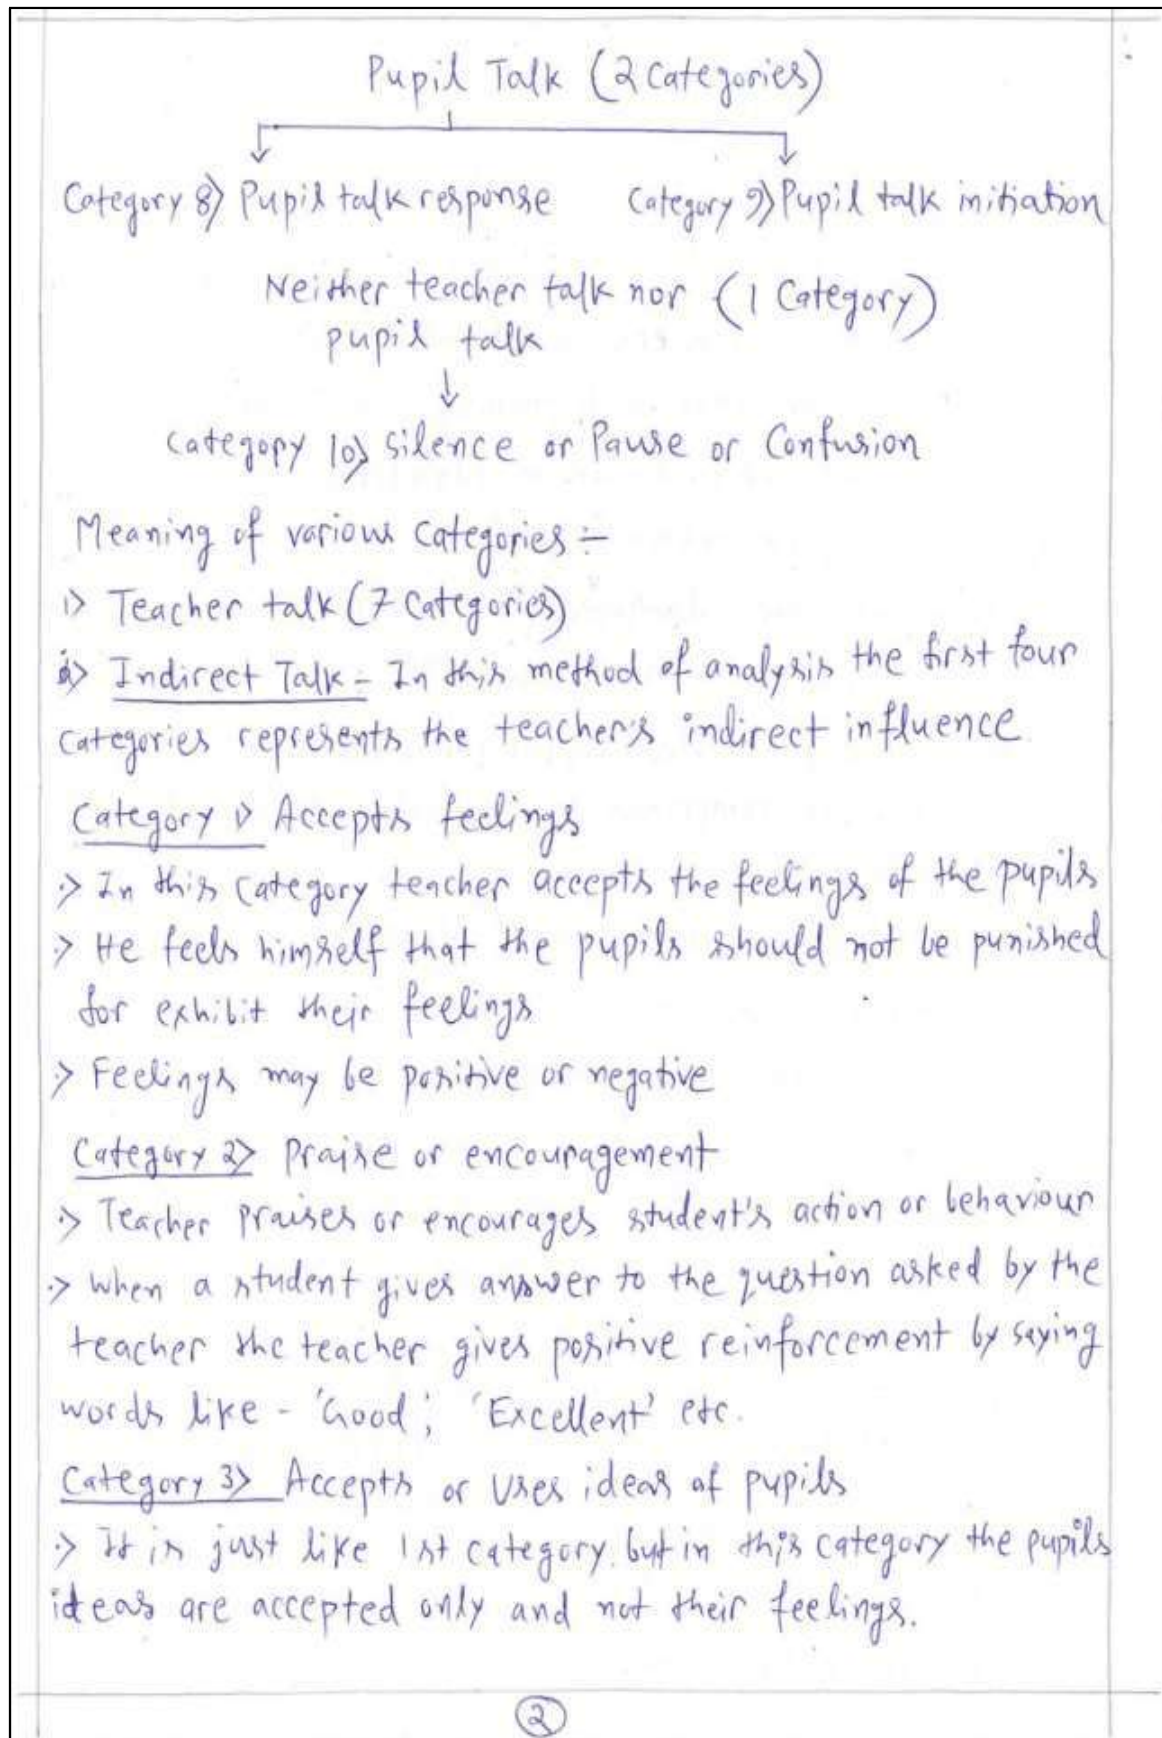 Pupil Talk (2 Categories)
Category 8) Pupil talk response Category 9) Pupil talk initiation
Neither teacher talk nor (1 Category)
pupil talk
Category 10) Silence or Pause or Confusion
Meaning of various Categories :-
1) Teacher talk (7 Categories)
a) Indirect Talk - In this method of analysis the first four
categories represents the teacher's indirect influence
Category 1) Accepts feelings
:> In this category teacher accepts the feelings of the pupils
:> He feels himself that the pupils should not be punished
for exhibit their feelings
:> Feelings may be positive or negative
Category 2) Praise or encouragement
:> Teacher praises or encourages student's action or behaviour
:> When a student gives answer to the question asked by the
teacher the teacher gives positive reinforcement by saying
words like - 'Good', 'Excellent' etc.
Category 3) Accepts or Uses ideas of pupils
:> It is just like 1st category. but in this category the pupils
ideas are accepted only and not their feelings.
2